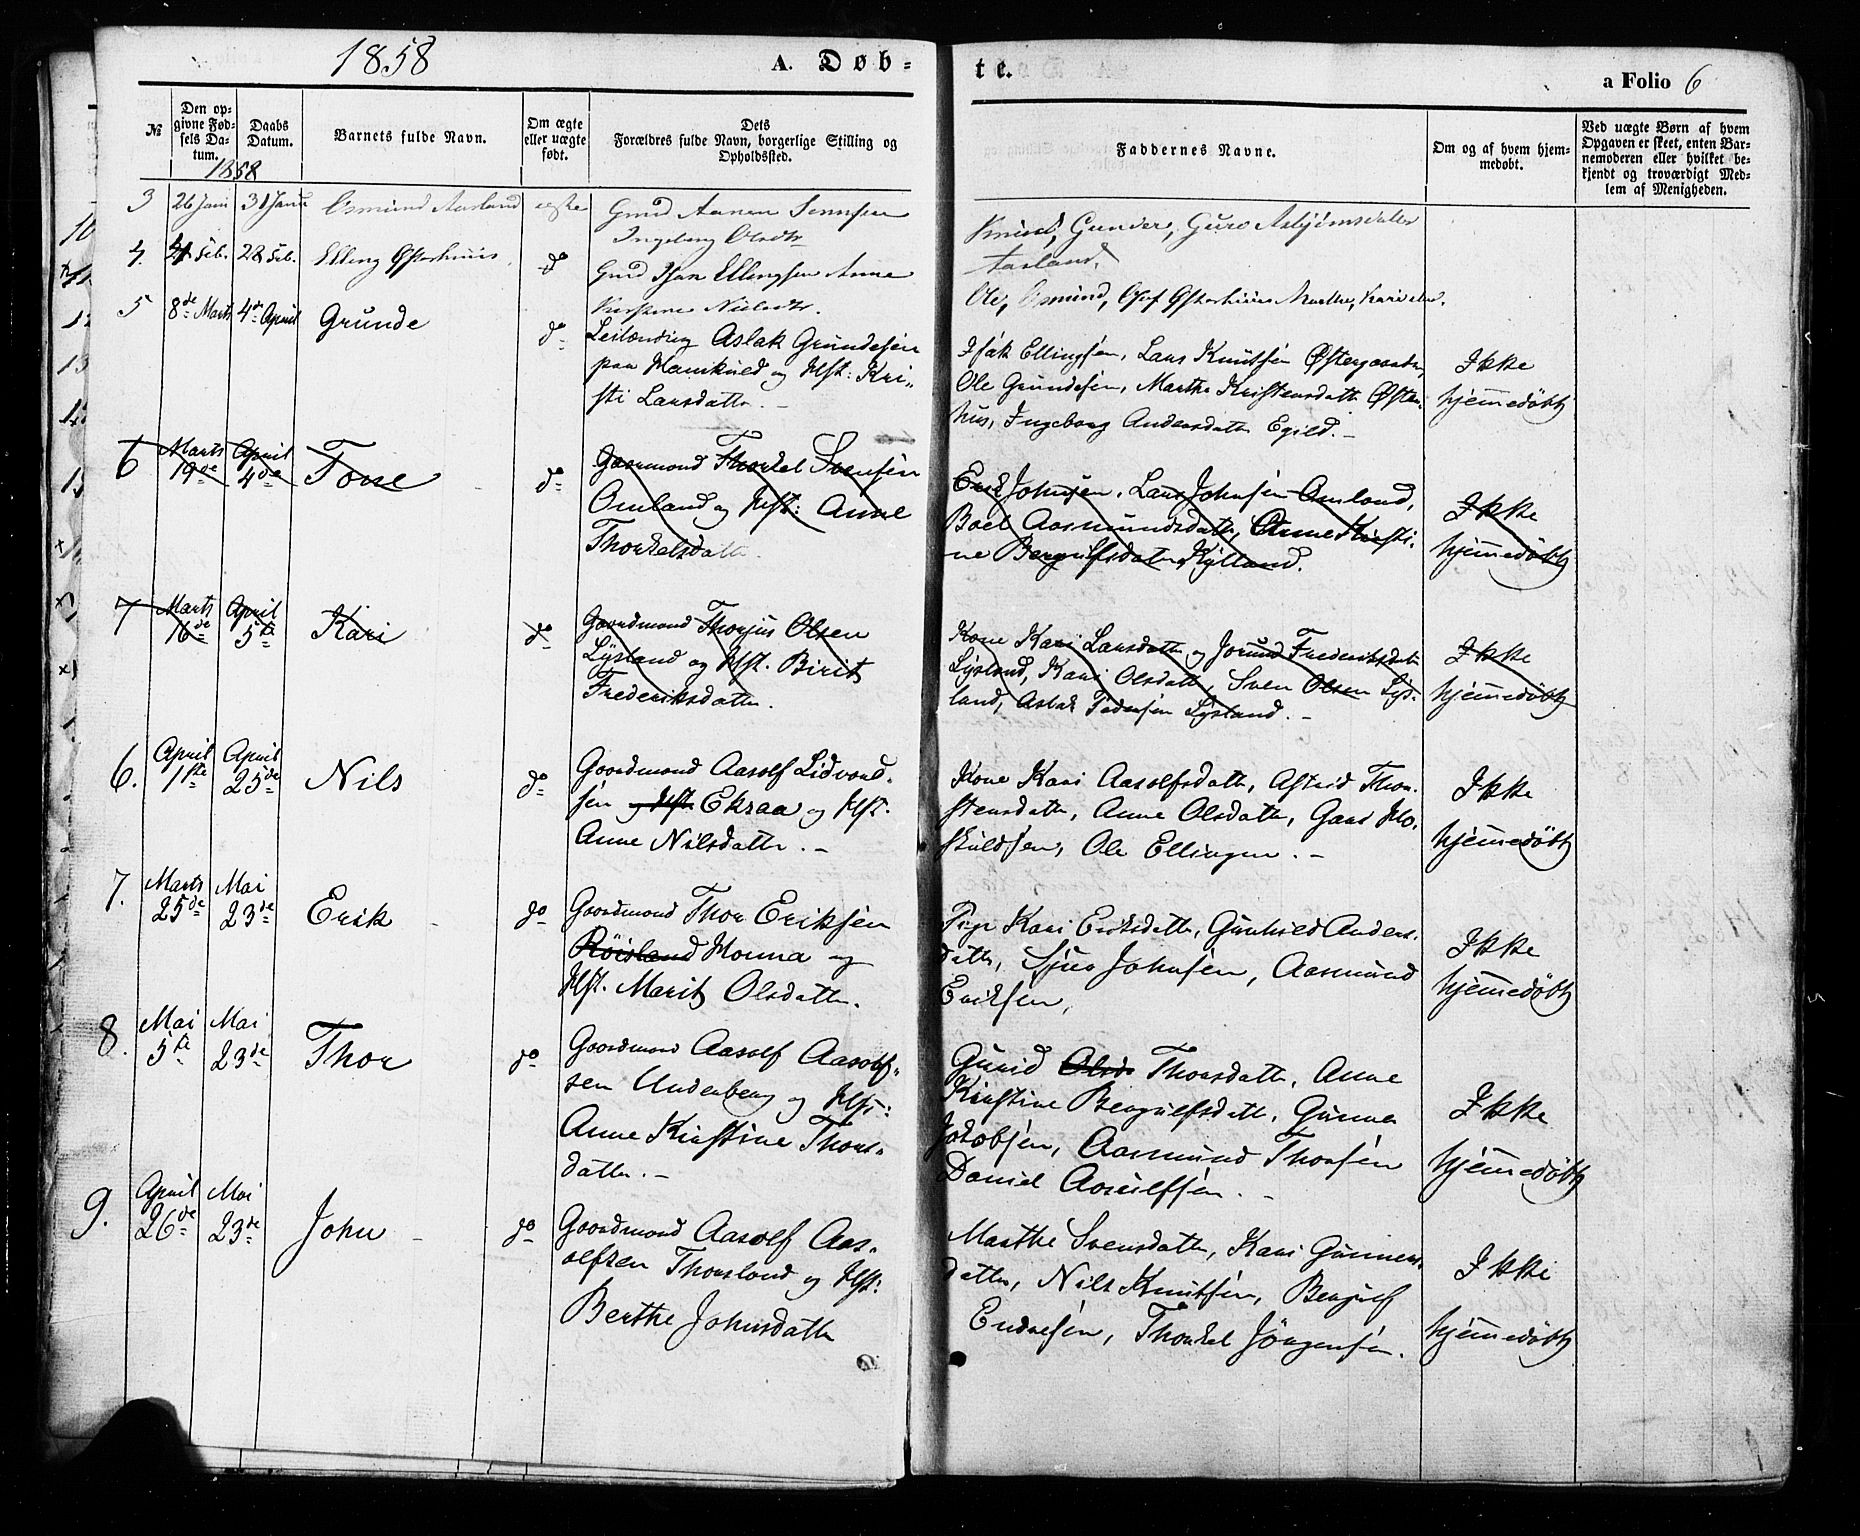 1858
A. Døb-
te.
a Folio 6
№
Den op-
givne Fød-
sels Da-
tum.
Daabs
Datum.
Barnets fulde Navn.
Om ægte
eller uægte
født.
Dets
Forældres fulde Navn, borgerlige Stilling og
Opholdssted.
Faddernes Navne.
Om og af hvem hjem-
medøbt.
Ved uægte Børn af hvem
Opgaven er skeet, enten Bar-
nemoderen eller hvilket be-
kjendt og troværdigt Med-
lem af Menigheden.
1858
3
26 Janu
31 Janu
Osmund Aasland
ægte
Gmd Aanen
Ingeborg Olsdtr
Knud, Gunder, Guro Asbjörnsdatter
Aasland.
4.
Feb.
28 Feb.
Elling Østerhuus
do
Gmd Isak Ellingsen Anne
Kirstine Nielsdtr.
Ole, Osmund, Oluf Østerhuus Marthe, Kari
5
8de Marts
4de April
Grunde
do
Leilænding Aslak Grundesen
paa Hauskuld og Hst: Kri-
sti Larsdatter. -
Isak Ellingsen, Lars Knutsen Östergaarden,
Ole Grundesen, Marthe Kristensdatter Öster-
hus, Ingeborg Andersdatter Egild. -
Ikke
hjemmedøbt
6
Marts
19de
April
4de
Tone
do
Gaardmand Thorkel Svensen
Omland og Hst: Anne
Thorkelsdatter.
Erik Johnsen, Lars Johnsen Omland,
Boel Aasmundsdatter, Anne Kirsti-
ne Bergulfsdatter Kylland.
Ikke
hjemmedøbt
7
Marts
16de
April
5te
Kari
do
Gaardmand Thorjus Olsen
Lysland og Hst. Birit
Frederiksdatter.
Kone Kari Larsdatter og Jorund Frederiksdatter
Lysland, Kari Olsdatter, Sven Olsen Lys-
land, Aslak Pedersen Lysland. -
Ikke
hjemmedøbt
6.
April
1ste
April
25de
Nils
do
Gaardmand Aasolf Lidvord-
sen og Hst. Eksaa og Hst.
Anne Nilsdatter. -
Kone Kari Aasolfsdatter, Astrid Thor-
stensdatter, Anne Olsdatter, Gaas Ho-
skuldsen, Ole Ellingsen. -
Ikke
hjemmedøbt
7.
Marts
25de
Mai
23de
Erik
do
Gaardmand Thor Eriksen
Röisland Homma og
Hst. Marit Olsdatter.
Pige Kari Eriksdatter, Gunhild Anders-
datter, Sjus Johnsen, Aasmund
Eriksen,
Ikke
hjemmedøbt
8.
Mai
5te
Mai
23de
Thor
do
Gaardmand Aasolf Aasolf-
sen Underberg og Hst:
Anne Kirstine Thors-
datter. -
Gurid Olsd. Thorsdatter, Anne
Kirstine Bergulfsdatt., Gunner
Jakobsen, Aasmund Thorsen
Daniel Aasulfsen. -
Ikke
hjemmedøbt
9.
April
26de
Mai
23de
John
do
Gaardmand Aasolf Aas-
olfsen Thorsland og Hst:
Berthe Johnsdatter
Marthe Svensdatter, Kari Gunners-
datter, Nils Knutsen, Bergulf
Endresen, Thorkel Jörgensen.
Ikke
hjemmedøbt